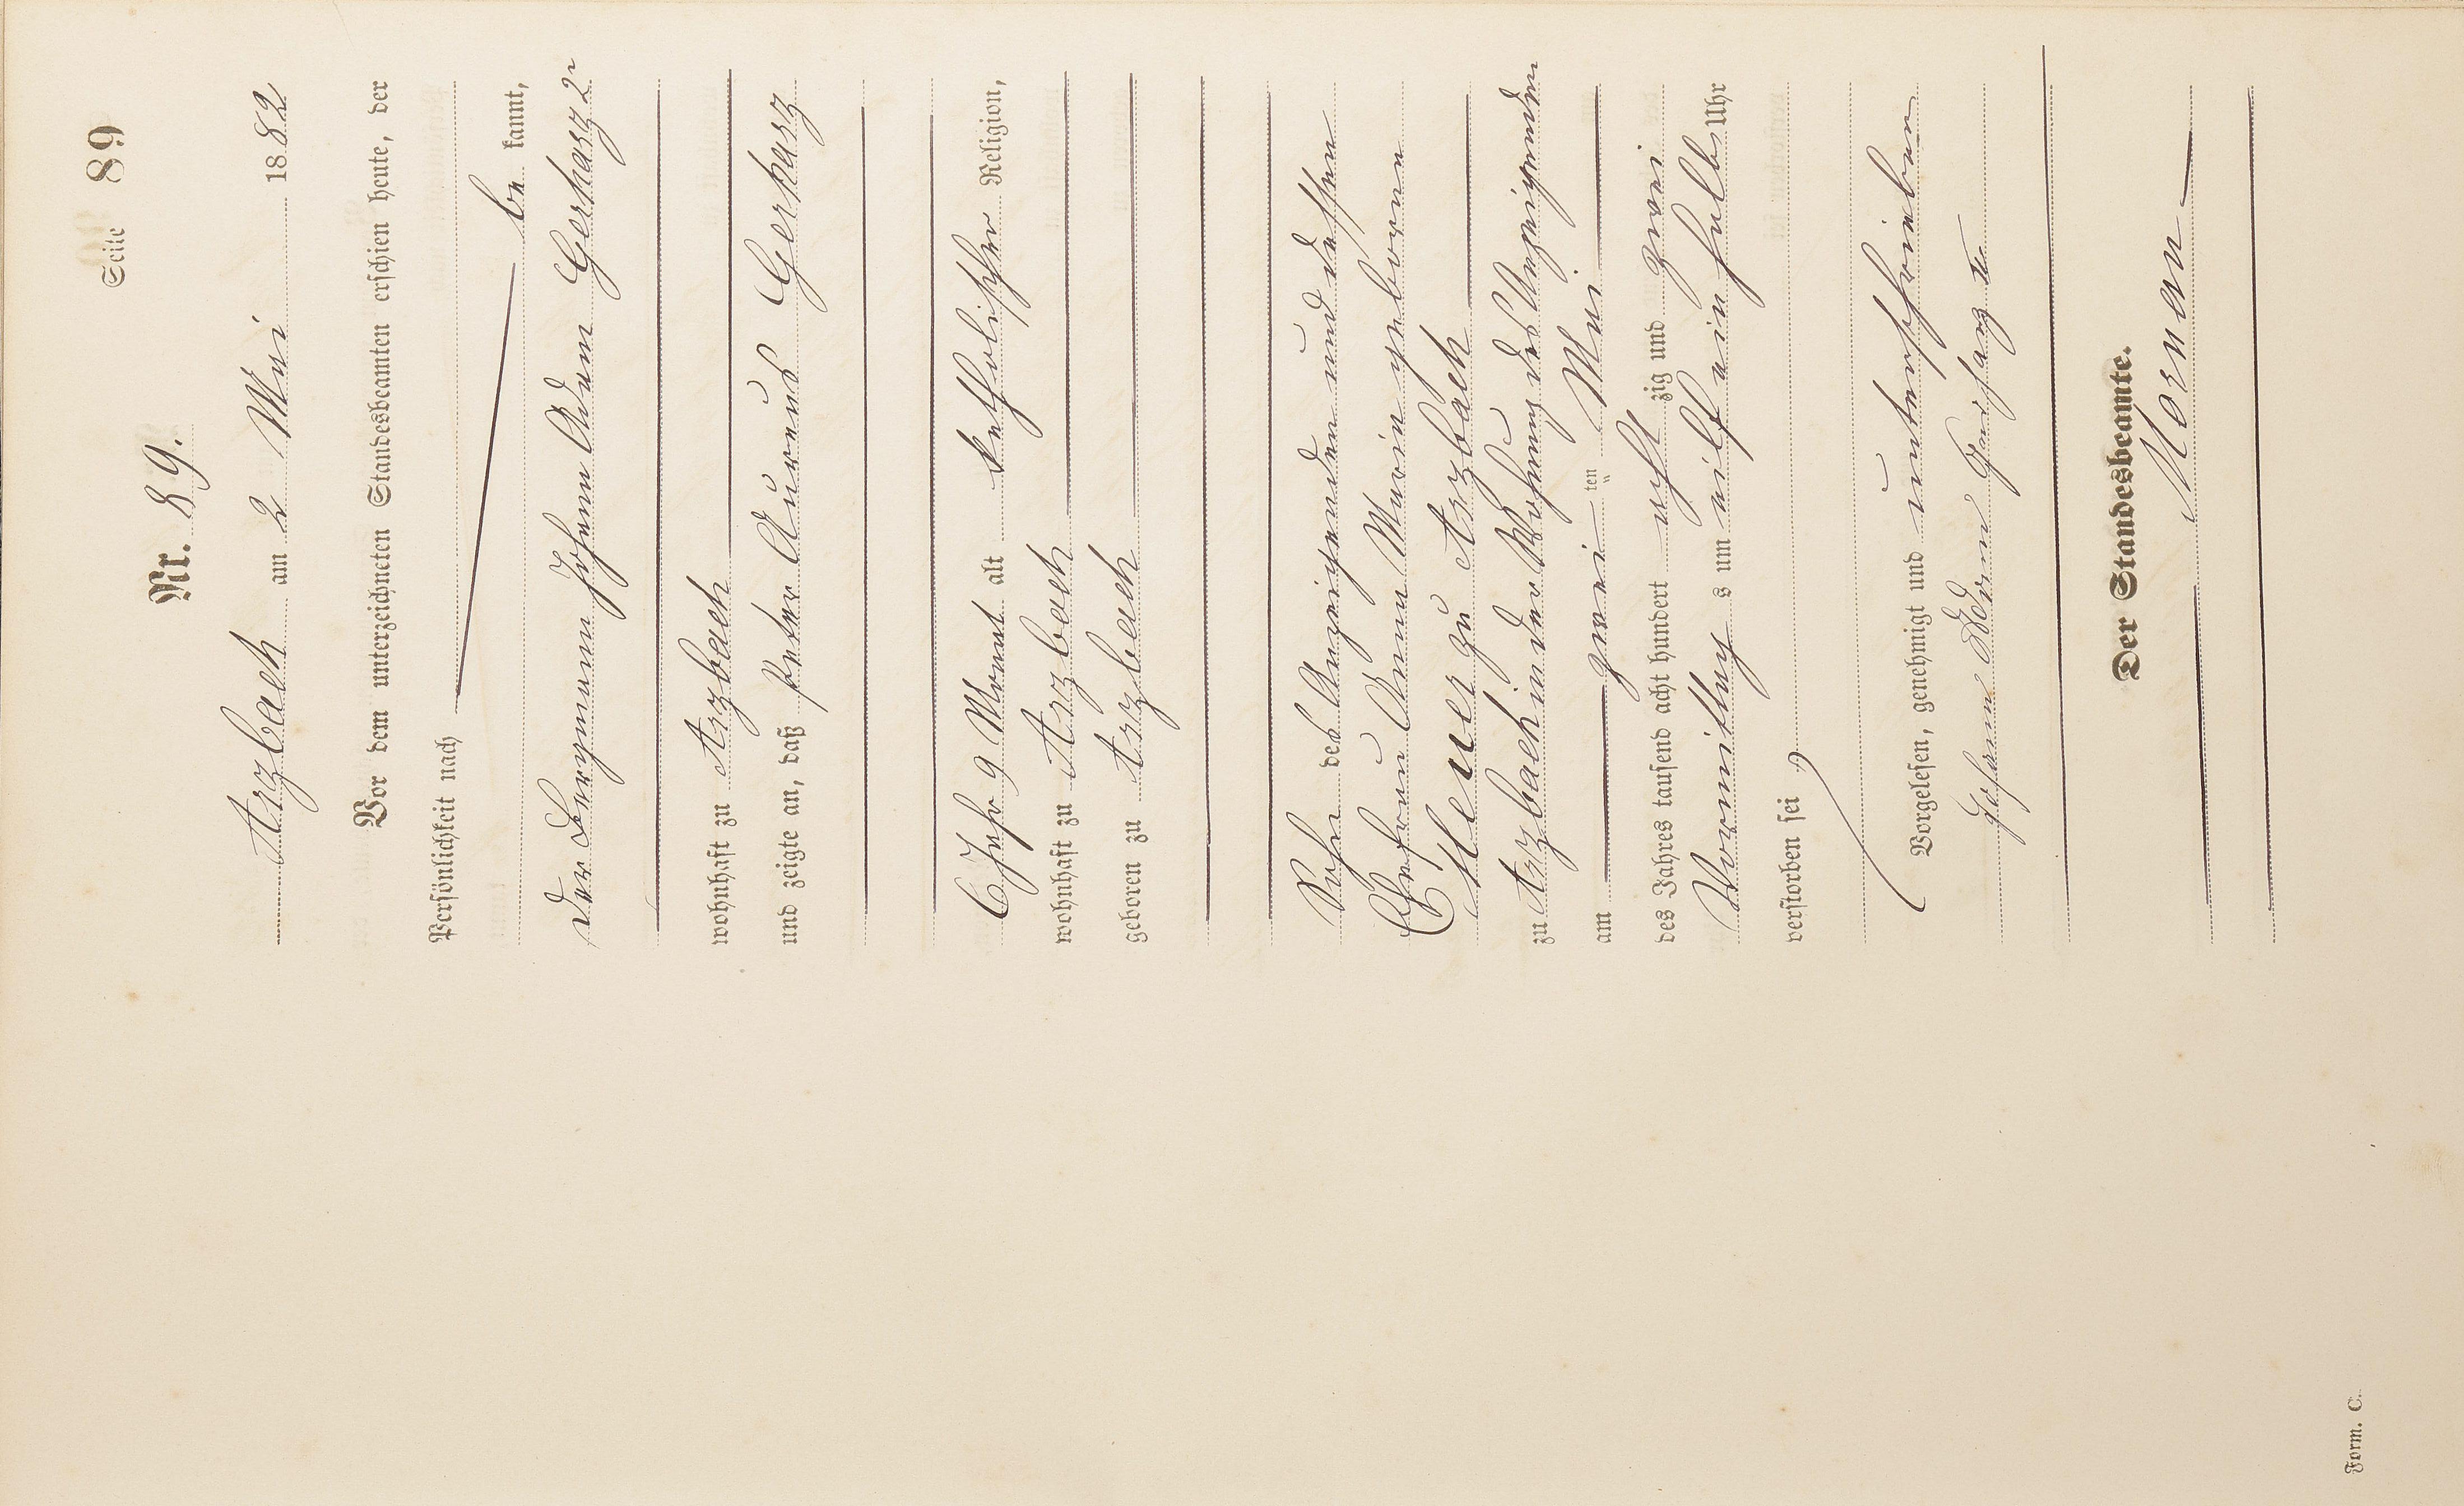 Seite 89
Nr. 89.
Arzbach am 2 Mai 1882
Vor dem unterzeichneten Standesbeamten erschien heute, der
Persönlichkeit nach
be kannt,
der Bergmann Johann Adam Gerharz 2r
wohnhaft zu Arzbach
und zeigte an, daß Peter Aurenb Gerharz
6 Jahr 9 Monat alt katholischer Religion,
wohnhaft zu Arzbach
geboren zu Arzbach
Sohn des Anzeigenden und dessen
Ehefrau Anna Maria geborne
zu Arzbach
zu Arzbach in der Wohnung des Anzeigenden
am zwei ten Mai
des Jahres tausend acht hundert acht zig und zwei
Vormittag s um eilf ein halb Uhr
verstorben sei
Vorgelesen, genehmigt und unterschrieben
Johann Adam Gerharz II
Der Standesbeamte.
Form. C.